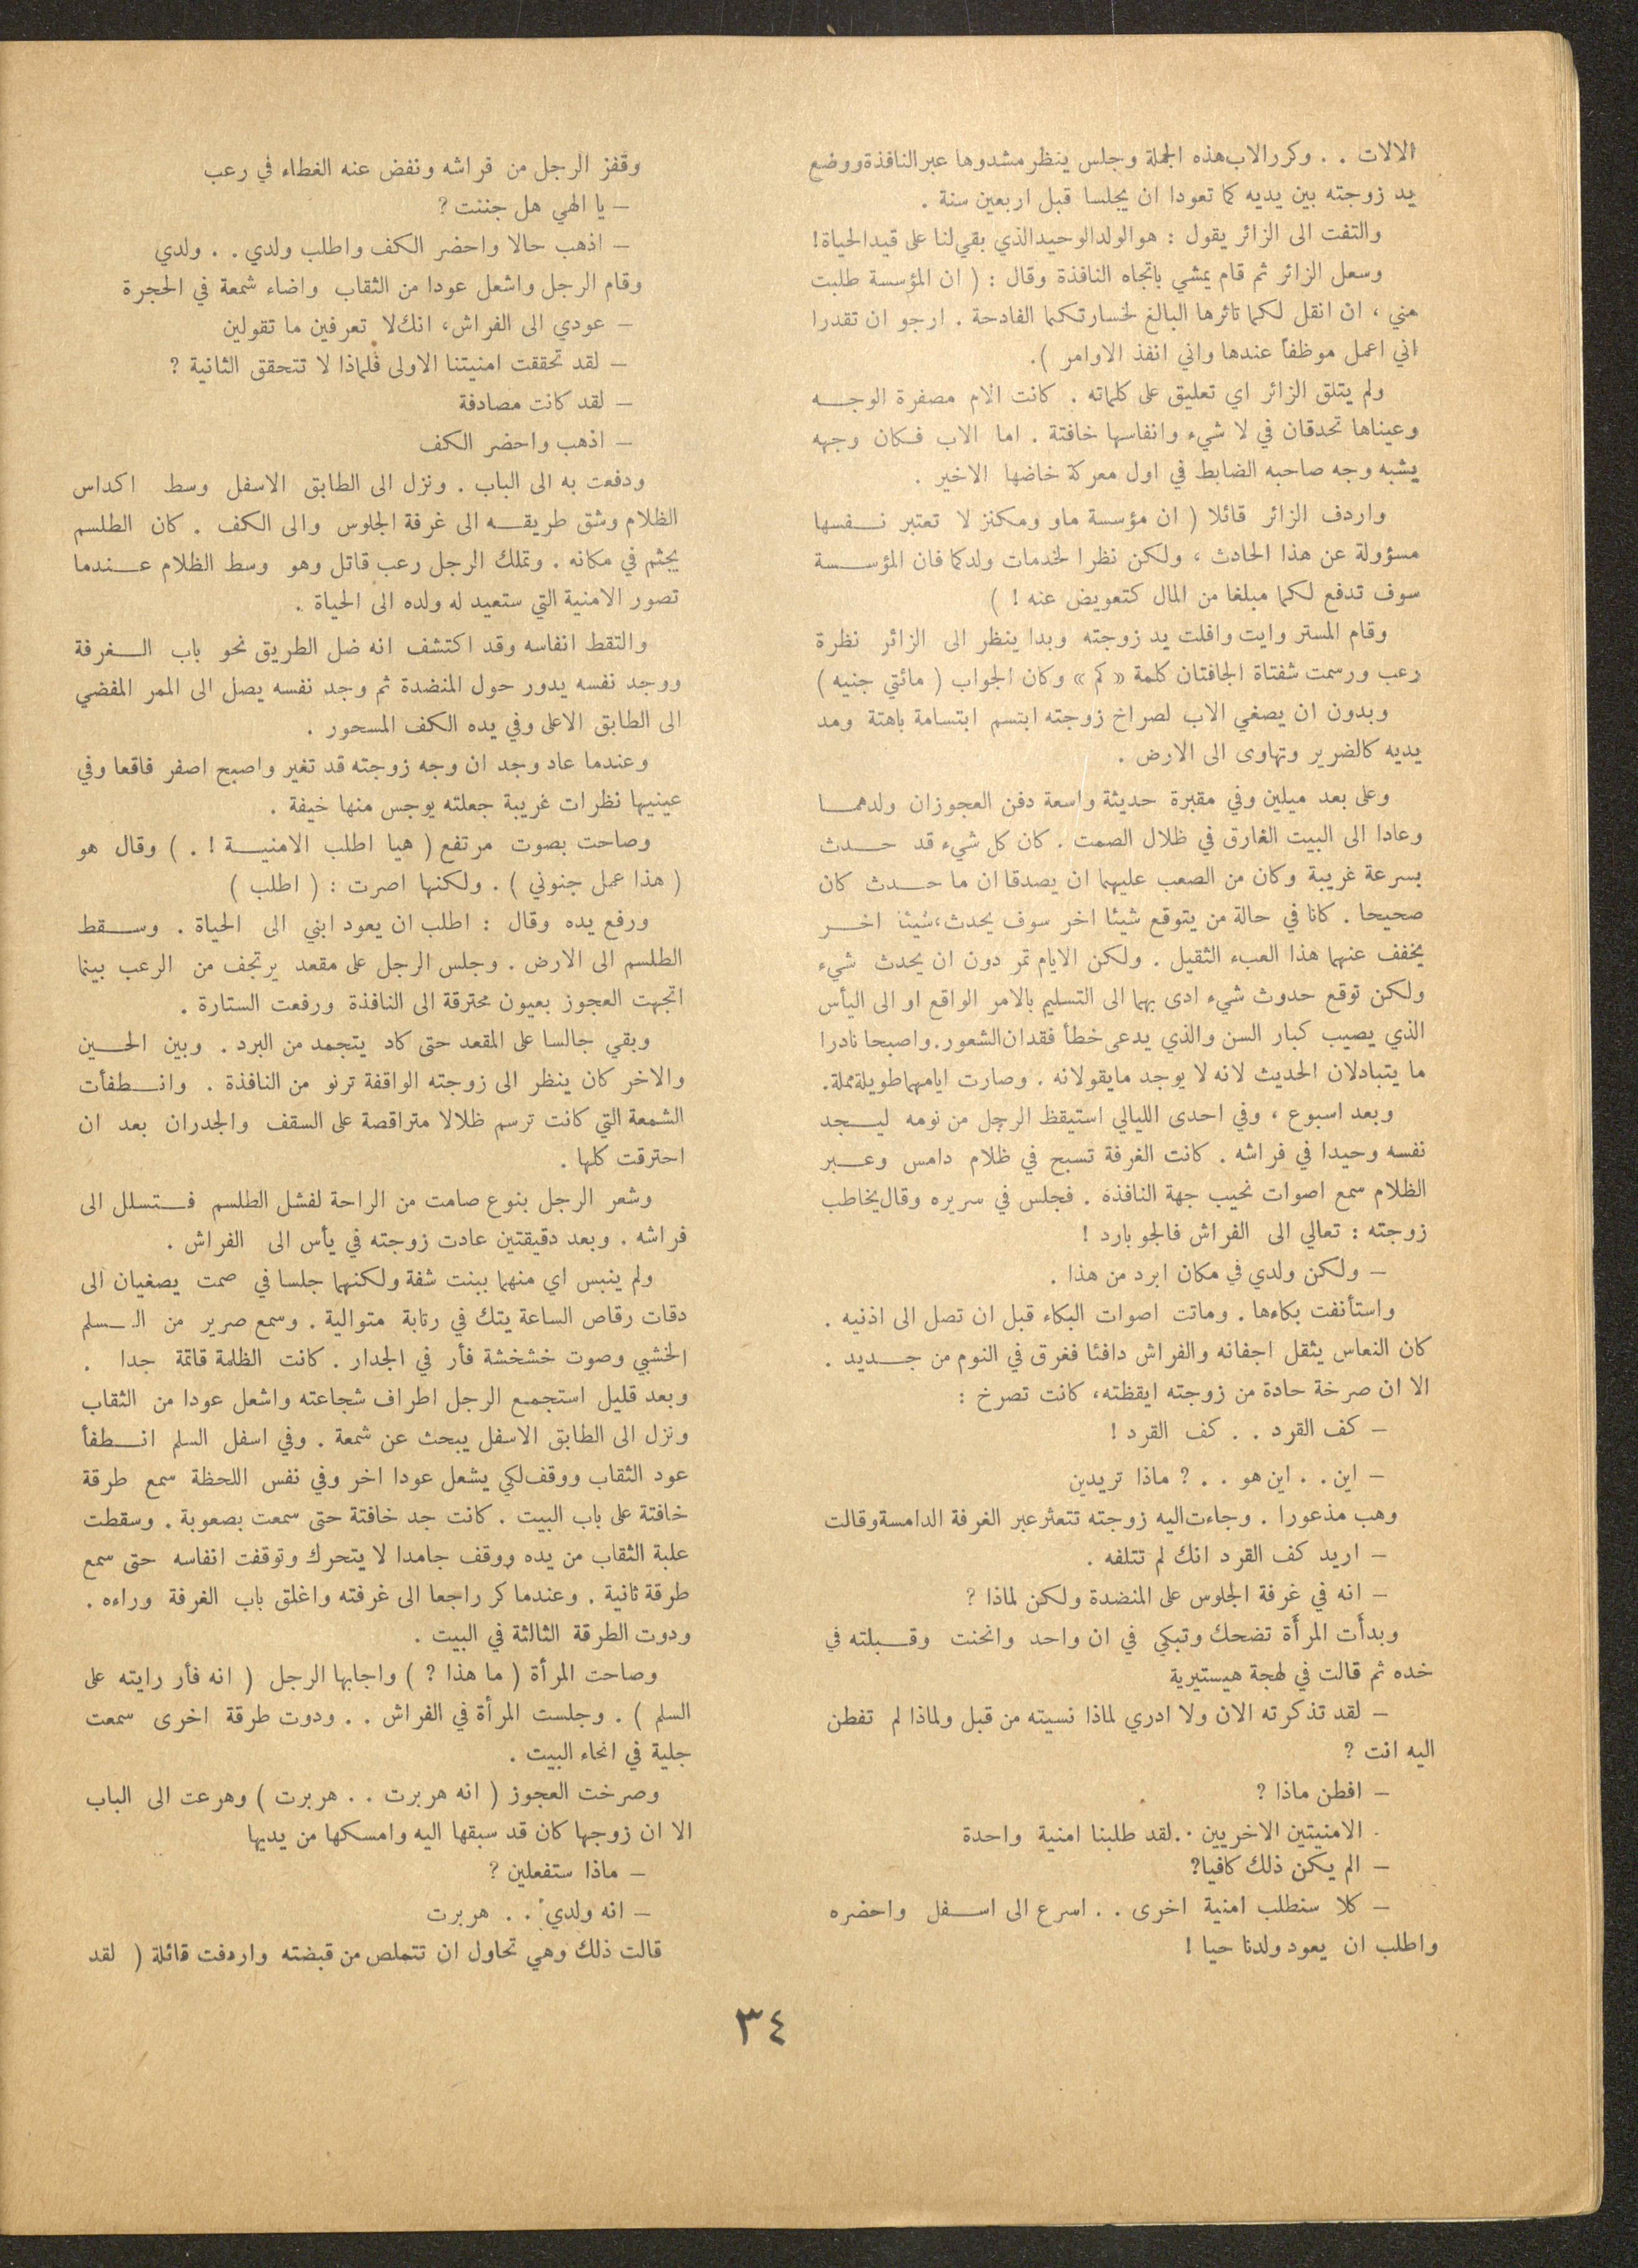 الالات . . وكرر الاب هذه الجملة وجلس ينظر مشدوها عبر النافذة ووضع
يد زوجته بين يديه كما تعودا ان يجلسا قبل اربعين سنة .
والتفت الى الزائر يقول : هو الولد الوحيد الذي بقي لنا على قيد الحياة !
وسعل الزائر ثم قام يمشي باتجاه النافذة وقال : ( ان المؤسسة طلبت
مني ، ان انقل لكما تاثرها البالغ لخسارتكما الفادحة . ارجو ان تقدرا
اني اعمل موظفاً عندها واني انفذ الاوامر ) .
ولم يتلق الزائر اي تعليق على كلماته . كانت الام مصفرة الوجه
وعيناها تحدقان في لا شيء وانفاسها خافتة . اما الاب فكان وجهه
يشبه وجه صاحبه الضابط في اول معركة خاضها الاخير .
واردف الزائر قائلا ( ان مؤسسة ماو ومكنز لا تعتبر نفسها
مسؤولة عن هذا الحادث ، ولكن نظرا لخدمات ولدكما فان المؤسسة
سوف تدفع لكما مبلغا من المال كتعويض عنه ! )
وقام المستر وايت وافلت يد زوجته وبدا ينظر الى الزائر نظرة
رعب ورسمت شفتاة الجافتان كلمة « كم » وكان الجواب ( مائتي جنيه )
وبدون ان يصغي الاب لصراخ زوجته ابتسم ابتسامة باهتة ومد
يديه كالضرير وتهاوى الى الارض .
وعلى بعد ميلين وفي مقبرة حديثة واسعة دفن العجوزان ولدهما
وعادا الى البيت الغارق في ظلال الصمت . كان كل شيء قد حدث
بسرعة غريبة وكان من الصعب عليهما ان يصدقا ان ما حدث كان
صحيحا . كانا في حالة من يتوقع شيئا اخر سوف يحدث ، شيئا اخر
يخفف عنهما هذا العبء الثقيل . ولكن الايام تمر دون ان يحدث شيء
ولكن توقع حدوث شيء ادى بهما الى التسليم بالامر الواقع او الى اليأس
الذي يصيب كبار السن والذي يدعى خطأ فقدان الشعور . واصبحا نادرا
ما يتبادلان الحديث لانه لا يوجد مايقولانه . وصارت ايامهما طويلة مملة .
وبعد اسبوع ، وفي احدى الليالي استيقظ الرجل من نومه ليجد
نفسه وحيدا في فراشه . كانت الغرفة تسبح في ظلام دامس وعبر
الظلام سمع اصوات نحيب جهة النافذة . فجلس في سريره وقال يخاطب
زوجته : تعالي الى الفراش فالجو بارد !
– ولكن ولدي في مكان ابرد من هذا .
واستأنفت بكاءها . وماتت اصوات البكاء قبل ان تصل الى اذنيه .
كان النعاس يثقل اجفانه والفراش دافئا فغرق في النوم من جديد .
الا ان صرخة حادة من زوجته ايقظته ، كانت تصرخ :
– كف القرد . . كف القرد !
– اين . . اين هو . . ? ماذا تريدين
وهب مذعورا . وجاءت اليه زوجته تتعثر عبر الغرفة الدامسة وقالت
– اريد كف القرد انك لم تتلفه .
– انه في غرفة الجلوس على المنضدة ولكن لماذا ?
وبدأت المرأة تضحك وتبكي في ان واحد وانحنت وقبلته في
خده ثم قالت في لهجة هيستيرية
– لقد تذكرته الان ولا ادري لماذا نسيته من قبل ولماذا لم تفطن
اليه انت ?
– افطن ماذا ?
. الامنيتين الاخريين . . لقد طلبنا امنية واحدة
– الم يكن ذلك كافيا ?
– كلا سنطلب امنية اخرى . . اسرع الى اسفل واحضره
واطلب ان يعود ولدنا حيا !
وقفز الرجل من فراشه ونفض عنه الغطاء في رعب
– يا الهي هل جننت ?
– اذهب حالا واحضر الكف واطلب ولدي . . ولدي
وقام الرجل واشعل عودا من الثقاب واضاء شمعة في الحجرة
– عودي الى الفراش ، انك لا تعرفين ما تقولين
– لقد تحققت امنيتنا الاولى فلماذا لا تتحقق الثانية ?
– لقد كانت مصادفة
– اذهب واحضر الكف
ودفعت به الى الباب . ونزل الى الطابق الاسفل وسط اكداس
الظلام وشق طريقه الى غرفة الجلوس والى الكف . كان الطلسم
يجثم في مكانه . وتملك الرجل رعب قاتل وهو وسط الظلام عندما
تصور الامنية التي ستعيد له ولده الى الحياة .
والتقط انفاسه وقد اكتشف انه ضل الطريق نحو باب الغرفة
ووجد نفسه يدور حول المنضدة ثم وجد نفسه يصل الى الممر المفضي
الى الطابق الاعلى وفي يده الكف المسحور .
وعندما عاد وجد ان وجه زوجته قد تغير واصبح اصفر فاقعا وفي
عينيها نظرات غريبة جعلته يوجس منها خيفة .
وصاحت بصوت مرتفع ( هيا اطلب الامنية ! . ) وقال هو
( هذا عمل جنوني ) . ولكنها اصرت : ( اطلب )
ورفع يده وقال : اطلب ان يعود ابني الى الحياة . وسقط
الطلسم الى الارض . وجلس الرجل على مقعد يرتجف من الرعب بينما
اتجهت العجوز بعيون محترقة الى النافذة ورفعت الستارة .
وبقي جالسا على المقعد حتى كاد يتجمد من البرد . وبين الحين
والاخر كان ينظر الى زوجته الواقفة ترنو من النافذة . وانطفأت
الشمعة التي كانت ترسم ظلالا متراقصة على السقف والجدران بعد ان
احترقت كلها .
وشعر الرجل بنوع صامت من الراحة لفشل الطلسم فتسلل الى
فراشه . وبعد دقيقتين عادت زوجته في يأس الى الفراش .
ولم ينبس اي منهما ببنت شفة ولكنهما جلسا في صمت يصغيان الى
دقات رقاص الساعة يتك في رتابة متوالية . وسمع صرير من السلم
الخشبي وصوت خشخشة فأر في الجدار . كانت الظلمة قاتمة جدا .
وبعد قليل استجمع الرجل اطراف شجاعته واشعل عودا من الثقاب
ونزل الى الطابق الاسفل يبحث عن شمعة . وفي اسفل السلم انطفأ
عود الثقاب ووقف لكي يشعل عودا اخر وفي نفس اللحظة سمع طرقة
خافتة على باب البيت . كانت جد خافتة حتى سمعت بصعوبة . وسقطت
علبة الثقاب من يده ووقف جامدا لا يتحرك وتوقفت انفاسه حتى سمع
طرقة ثانية . وعندما كر راجعا الى غرفته واغلق باب الغرفة وراءه .
ودوت الطرقة الثالثة في البيت .
وصاحت المرأة ( ما هذا ? ) واجابها الرجل ( انه فأر رايته على
السلم ) . وجلست المرأة في الفراش . . ودوت طرقة اخرى سمعت
جلية في انحاء البيت .
وصرخت العجوز ( انه هربرت . . هربرت ) وهرعت الى الباب
الا ان زوجها كان قد سبقها اليه وامسكها من يديها
– ماذا ستفعلين ?
– انه ولدي . . هربرت
قالت ذلك وهي تحاول ان تتملص من قبضته واردفت قائلة ( لقد
٣٤